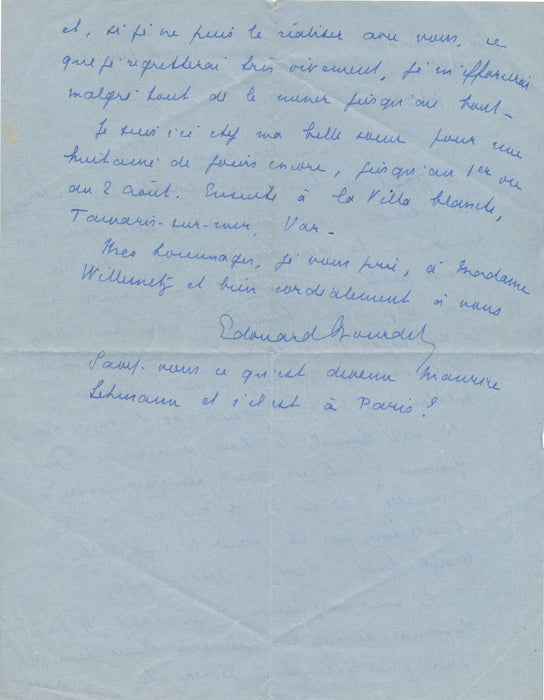 et, si je ne puis le réaliser avec vous, ce
que je regretterai très vivement, je m'efforcerai
malgré tout de le mener jusqu'au bout –
Je suis ici chez ma belle sœur pour une
huitaine de jours encore, jusqu'au 1er ou
au 2 Août. Ensuite à la Villa blanche,
Tamaris-sur-mer, Var –
Mes hommages, je vous prie, à Madame
Willemetz et bien cordialement à vous
Edouard Bourdet
Savez-vous ce qu'est devenu Maurice
Lehmann et s'il est à Paris ?